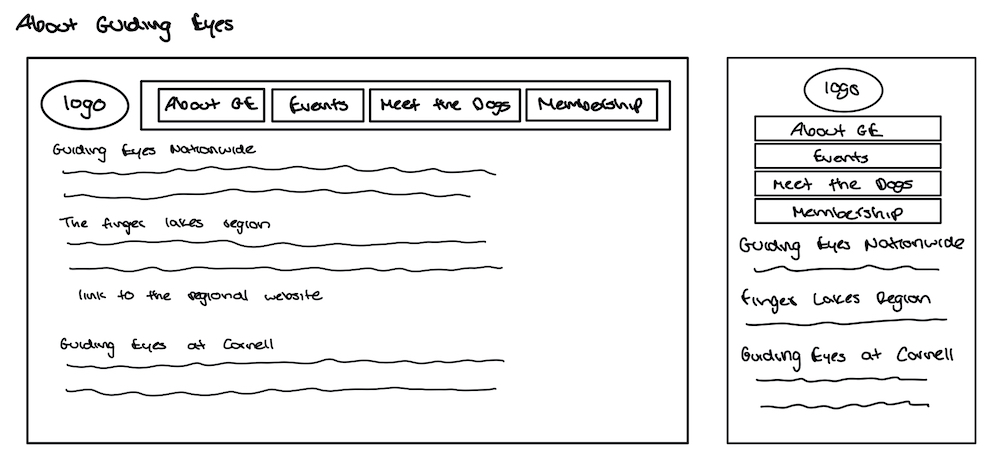 About Guiding Eyes
logo
About GE
Events
Meet the Dogs
Membership
Guiding Eyes Nationwide
The finger lakes region
link to the regional website
Guiding Eyes at Cornell
logo
About GE
Events
Meet the Dogs
Membership
Guiding Eyes Nationwide
Finger Lakes Region
Guiding Eyes at Cornell